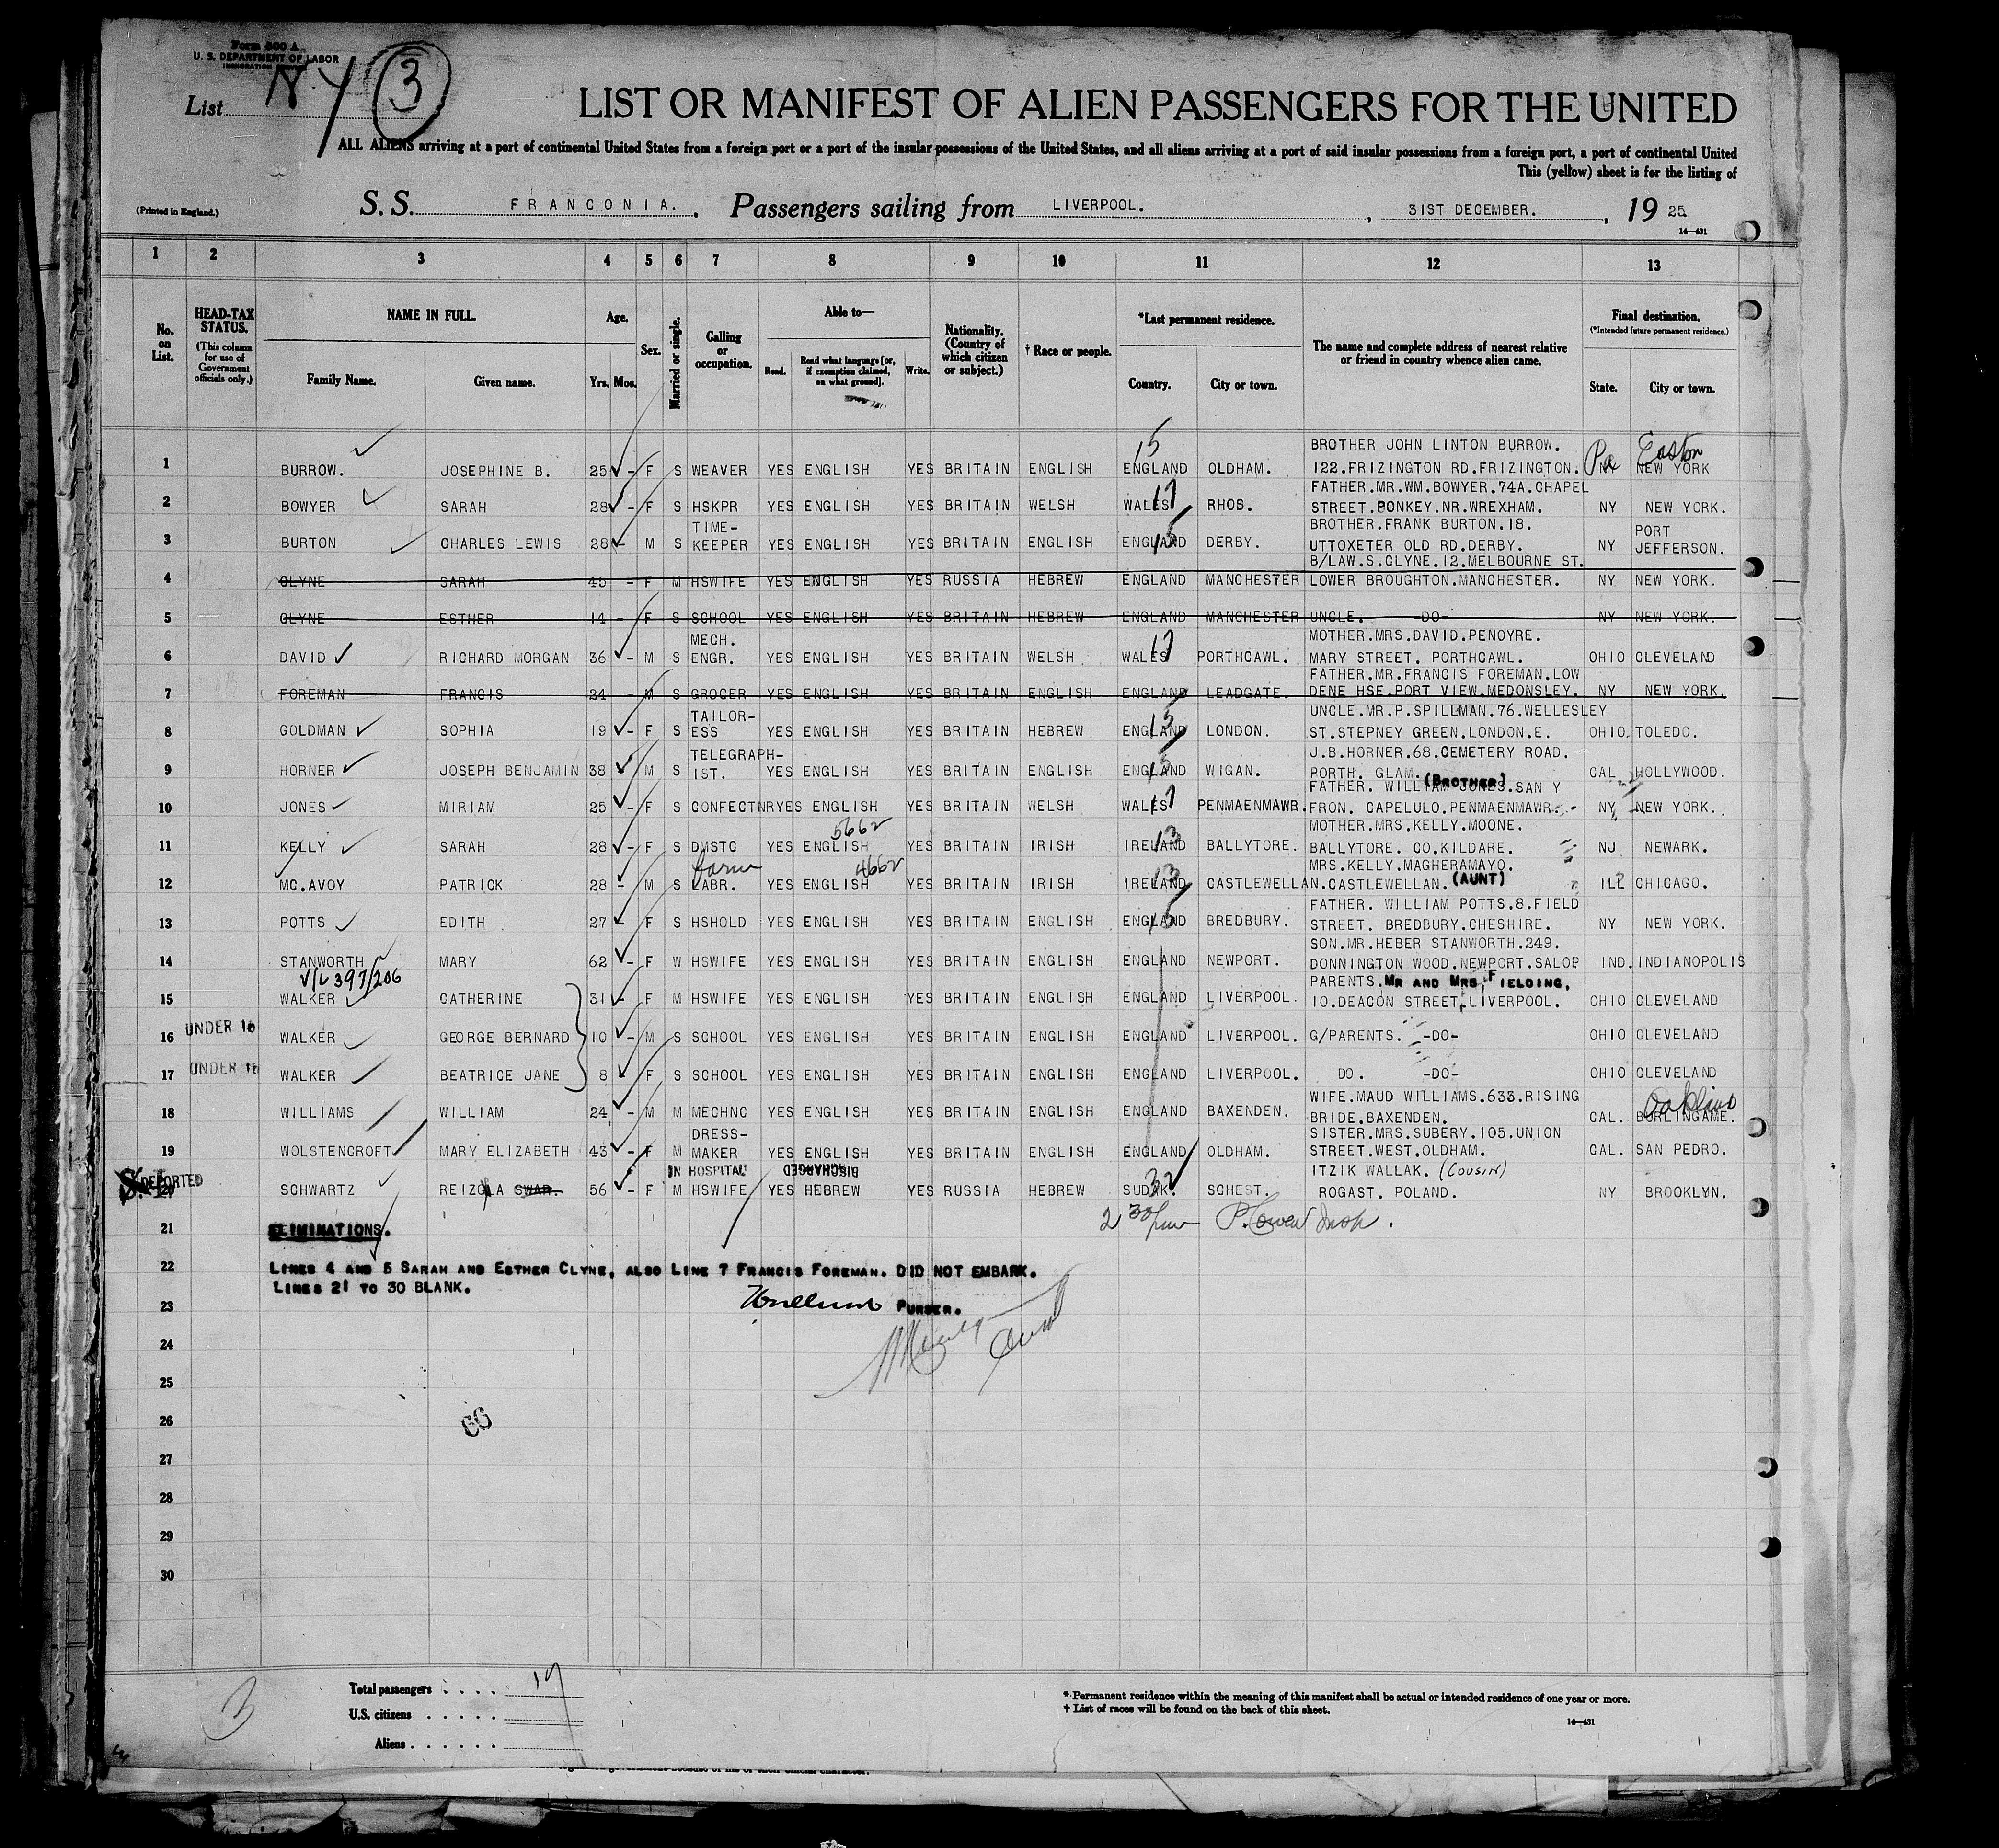 Form 500 A
U. S. DEPARTMENT OF LABOR
IMMIGRATION SERVICE
List N.Y 3
LIST OR MANIFEST OF ALIEN PASSENGERS FOR THE UNITED
ALL ALIENS arriving at a port of continental United States from a foreign port or a port of the insular possessions of the United States, and all aliens arriving at a port of said insular possessions from a foreign port, a port of continental United
This (yellow) sheet is for the listing of
(Printed in England.) S. S. FRANCONIA. , Passengers sailing from LIVERPOOL. , 31ST DECEMBER. , 19 25
14—431
1 2 3 4 5 6 7 8 9 10 11 12 13
No. on List. HEAD-TAX STATUS. (This column for use of Government officials only.) NAME IN FULL. Family Name. Given name. Age. Yrs. Mos. Sex. Married or single. Calling or occupation. Able to— Read. Read what language [or, if exemption claimed, on what ground]. Write. Nationality. (Country of which citizen or subject.) † Race or people. *Last permanent residence. Country. City or town. The name and complete address of nearest relative or friend in country whence alien came. Final destination. (*Intended future permanent residence.) State. City or town.
15 BROTHER JOHN LINTON BURROW. Pa Easton
1 BURROW. JOSEPHINE B. 25 - F S WEAVER YES ENGLISH YES BRITAIN ENGLISH ENGLAND OLDHAM. 122.FRIZINGTON RD.FRIZINGTON. NY NEW YORK
FATHER.MR.WM.BOWYER.74A.CHAPEL
2 BOWYER SARAH 28 - F S HSKPR YES ENGLISH YES BRITAIN WELSH WALES 17 RHOS. STREET.PONKEY.NR.WREXHAM. NY NEW YORK.
TIME- BROTHER.FRANK BURTON.18. PORT
3 BURTON CHARLES LEWIS 28 - M S KEEPER YES ENGLISH YES BRITAIN ENGLISH ENGLAND 15 DERBY. UTTOXETER OLD RD.DERBY. NY JEFFERSON.
B/LAW.S.CLYNE.12.MELBOURNE ST.
4 CLYNE SARAH 45 - F M HSWIFE YES ENGLISH YES RUSSIA HEBREW ENGLAND MANCHESTER LOWER BROUGHTON.MANCHESTER. NY NEW YORK.
5 CLYNE ESTHER 14 - F S SCHOOL YES ENGLISH YES BRITAIN HEBREW ENGLAND MANCHESTER UNCLE. -DO- NY NEW YORK.
MECH. MOTHER.MRS.DAVID.PENOYRE.
6 DAVID RICHARD MORGAN 36 - M S ENGR. YES ENGLISH YES BRITAIN WELSH WALES 17 PORTHCAWL. MARY STREET. PORTHCAWL. OHIO CLEVELAND
FATHER.MR.FRANCIS FOREMAN.LOW
7 FOREMAN FRANCIS 24 M S GROCER YES ENGLISH YES BRITAIN ENGLISH ENGLAND LEADGATE. DENE HSE.PORT VIEW.MEDONSLEY. NY NEW YORK.
TAILOR- UNCLE.MR.P.SPILLMAN.76.WELLESLEY
8 GOLDMAN SOPHIA 19 - F S ESS YES ENGLISH YES BRITAIN HEBREW ENGLAND 15 LONDON. ST.STEPNEY GREEN.LONDON.E. OHIO. TOLEDO.
TELEGRAPH- J.B.HORNER.68.CEMETERY ROAD.
9 HORNER JOSEPH BENJAMIN 38 M S IST. YES ENGLISH YES BRITAIN ENGLISH ENGLAND 15 WIGAN. PORTH. GLAM. (BROTHER) CAL HOLLYWOOD.
FATHER. WILLIAM JONES.SAN Y
10 JONES MIRIAM 25 - F S CONFECTNR YES ENGLISH YES BRITAIN WELSH WALES 17 PENMAENMAWR. FRON. CAPELULO.PENMAENMAWR. NY NEW YORK.
5662 MOTHER.MRS.KELLY.MOONE.
11 KELLY SARAH 28 - F S DMSTC YES ENGLISH YES BRITAIN IRISH IRELAND 13 BALLYTORE. BALLYTORE. CO.KILDARE. NJ NEWARK.
farm 4662 MRS.KELLY.MAGHERAMAYO.
12 MC.AVOY PATRICK 28 - M S LABR. YES ENGLISH YES BRITAIN IRISH IRELAND 13 CASTLEWELLAN. CASTLEWELLAN. (AUNT) ILL CHICAGO.
FATHER. WILLIAM POTTS.8.FIELD
13 POTTS EDITH 27 - F S HSHOLD YES ENGLISH YES BRITAIN ENGLISH ENGLAND 15 BREDBURY. STREET. BREDBURY.CHESHIRE. NY NEW YORK.
SON.MR.HEBER STANWORTH.249.
14 STANWORTH MARY 62 - F W HSWIFE YES ENGLISH YES BRITAIN ENGLISH ENGLAND NEWPORT. DONNINGTON WOOD.NEWPORT.SALOP IND. INDIANOPOLIS
V/L 397/206 PARENTS.MR AND MRS FIELDING,
15 WALKER CATHERINE 31 - F M HSWIFE YES ENGLISH YES BRITAIN ENGLISH ENGLAND LIVERPOOL. 10.DEACON STREET.LIVERPOOL. OHIO CLEVELAND
16 UNDER 16 WALKER GEORGE BERNARD 10 - M S SCHOOL YES ENGLISH YES BRITAIN ENGLISH ENGLAND LIVERPOOL. G/PARENTS. -DO- OHIO CLEVELAND
17 UNDER 16 WALKER BEATRICE JANE 8 F S SCHOOL YES ENGLISH YES BRITAIN ENGLISH ENGLAND LIVERPOOL. DO. -DO- OHIO CLEVELAND
WIFE.MAUD WILLIAMS.633.RISING Oakland
18 WILLIAMS WILLIAM 24 - M M MECHNC YES ENGLISH YES BRITAIN ENGLISH ENGLAND BAXENDEN. BRIDE.BAXENDEN. CAL. BURLINGAME.
DRESS- SISTER.MRS.SUBERY.105.UNION
19 WOLSTENCROFT MARY ELIZABETH 43 - F M MAKER YES ENGLISH YES BRITAIN ENGLISH ENGLAND OLDHAM. STREET.WEST.OLDHAM. CAL. SAN PEDRO.
DEPORTED IN HOSPITAL DISCHARGED ITZIK WALLAK. (COUSIN)
20 SCHWARTZ REIZLA SWAR. 56 - F M HSWIFE YES HEBREW YES RUSSIA HEBREW 32 SCHEST. ROGAST. POLAND. NY BROOKLYN.
21 ELIMINATIONS.
22 LINES 4 AND 5 SARAH AND ESTHER CLYNE, ALSO LINE 7 FRANCIS FOREMAN. DID NOT EMBARK.
LINES 21 TO 30 BLANK.
23 PURSER.
24
25
26 66
27
28
29
30
3 Total passengers . . . . 17
U.S. citizens . . . . .
Aliens . . . . . .
* Permanent residence within the meaning of this manifest shall be actual or intended residence of one year or more.
† List of races will be found on the back of this sheet.
14—431